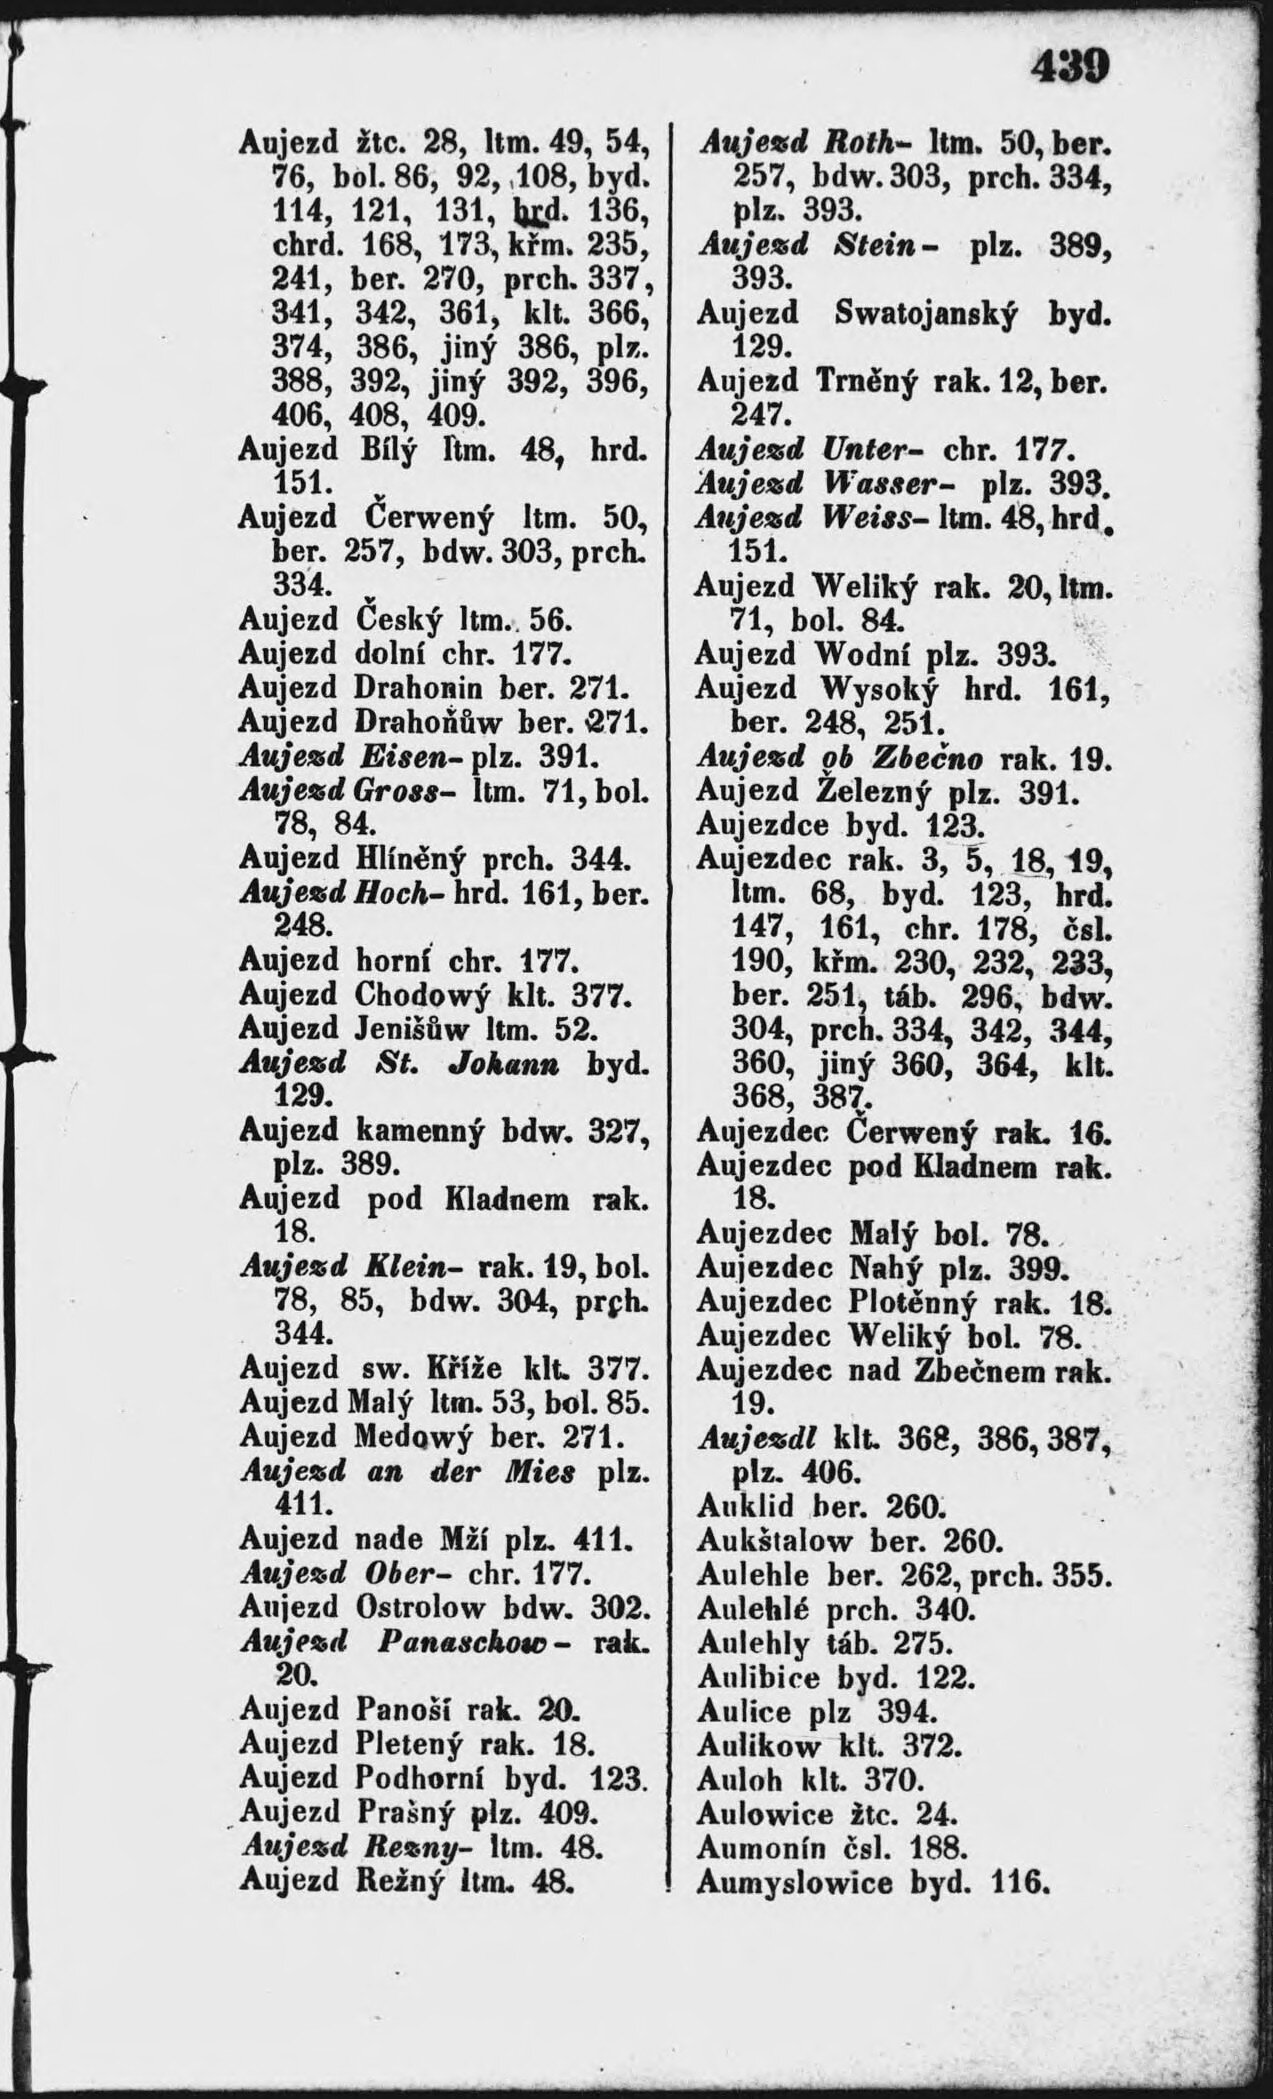 439
Aujezd žtc. 28, ltm. 49, 54,
76, bol. 86, 92, 108, byd.
114, 121, 131, hrd. 136,
chrd. 168, 173, křm. 235,
241, ber. 270, prch. 337,
341, 342, 361, klt. 366,
374, 386, jiný 386, plz.
388, 392, jiný 392, 396,
406, 408, 409.
Aujezd Bílý ltm. 48, hrd.
151.
Aujezd Čerwený ltm. 50,
ber. 257, bdw. 303, prch.
334.
Aujezd Český ltm. 56.
Aujezd dolní chr. 177.
Aujezd Drahonin ber. 271.
Aujezd Drahoňůw ber. 271.
Aujezd Eisen- plz. 391.
Aujezd Gross- ltm. 71, bol.
78, 84.
Aujezd Hlíněný prch. 344.
Aujezd Hoch- hrd. 161, ber.
248.
Aujezd horní chr. 177.
Aujezd Chodowý klt. 377.
Aujezd Jenišůw ltm. 52.
Aujezd St. Johann byd.
129.
Aujezd kamenný bdw. 327,
plz. 389.
Aujezd pod Kladnem rak.
18.
Aujezd Klein- rak. 19, bol.
78, 85, bdw. 304, prch.
344.
Aujezd sw. Kříže klt. 377.
Aujezd Malý ltm. 53, bol. 85.
Aujezd Medowý ber. 271.
Aujezd an der Mies plz.
411.
Aujezd nade Mží plz. 411.
Aujezd Ober- chr. 177.
Aujezd Ostrolow bdw. 302.
Aujezd Panaschow- rak.
20.
Aujezd Panoší rak. 20.
Aujezd Pletený rak. 18.
Aujezd Podhorní byd. 123.
Aujezd Prašný plz. 409.
Aujezd Rezny- ltm. 48.
Aujezd Režný ltm. 48.
Aujezd Roth- ltm. 50, ber.
257, bdw. 303, prch. 334,
plz. 393.
Aujezd Stein- plz. 389,
393.
Aujezd Swatojanský byd.
129.
Aujezd Trněný rak. 12, ber.
247.
Aujezd Unter- chr. 177.
Aujezd Wasser- plz. 393.
Aujezd Weiss- ltm. 48, hrd.
151.
Aujezd Weliký rak. 20, ltm.
71, bol. 84.
Aujezd Wodní plz. 393.
Aujezd Wysoký hrd. 161,
ber. 248, 251.
Aujezd ob Zbečno rak. 19.
Aujezd Železný plz. 391.
Aujezdce byd. 123.
Aujezdec rak. 3, 5, 18, 19,
ltm. 68, byd. 123, hrd.
147, 161, chr. 178, čsl.
190, křm. 230, 232, 233,
ber. 251, táb. 296, bdw.
304, prch. 334, 342, 344,
360, jiný 360, 364, klt.
368, 387.
Aujezdec Čerwený rak. 16.
Aujezdec pod Kladnem rak.
18.
Aujezdec Malý bol. 78.
Aujezdec Nahý plz. 399.
Aujezdec Plotěnný rak. 18.
Aujezdec Weliký bol. 78.
Aujezdec nad Zbečnem rak.
19.
Aujezdl klt. 368, 386, 387,
plz. 406.
Auklid ber. 260.
Aukštalow ber. 260.
Aulehle ber. 262, prch. 355.
Aulehlé prch. 340.
Aulehly táb. 275.
Aulibice byd. 122.
Aulice plz 394.
Aulikow klt. 372.
Auloh klt. 370.
Aulowice žtc. 24.
Aumonín čsl. 188.
Aumyslowice byd. 116.